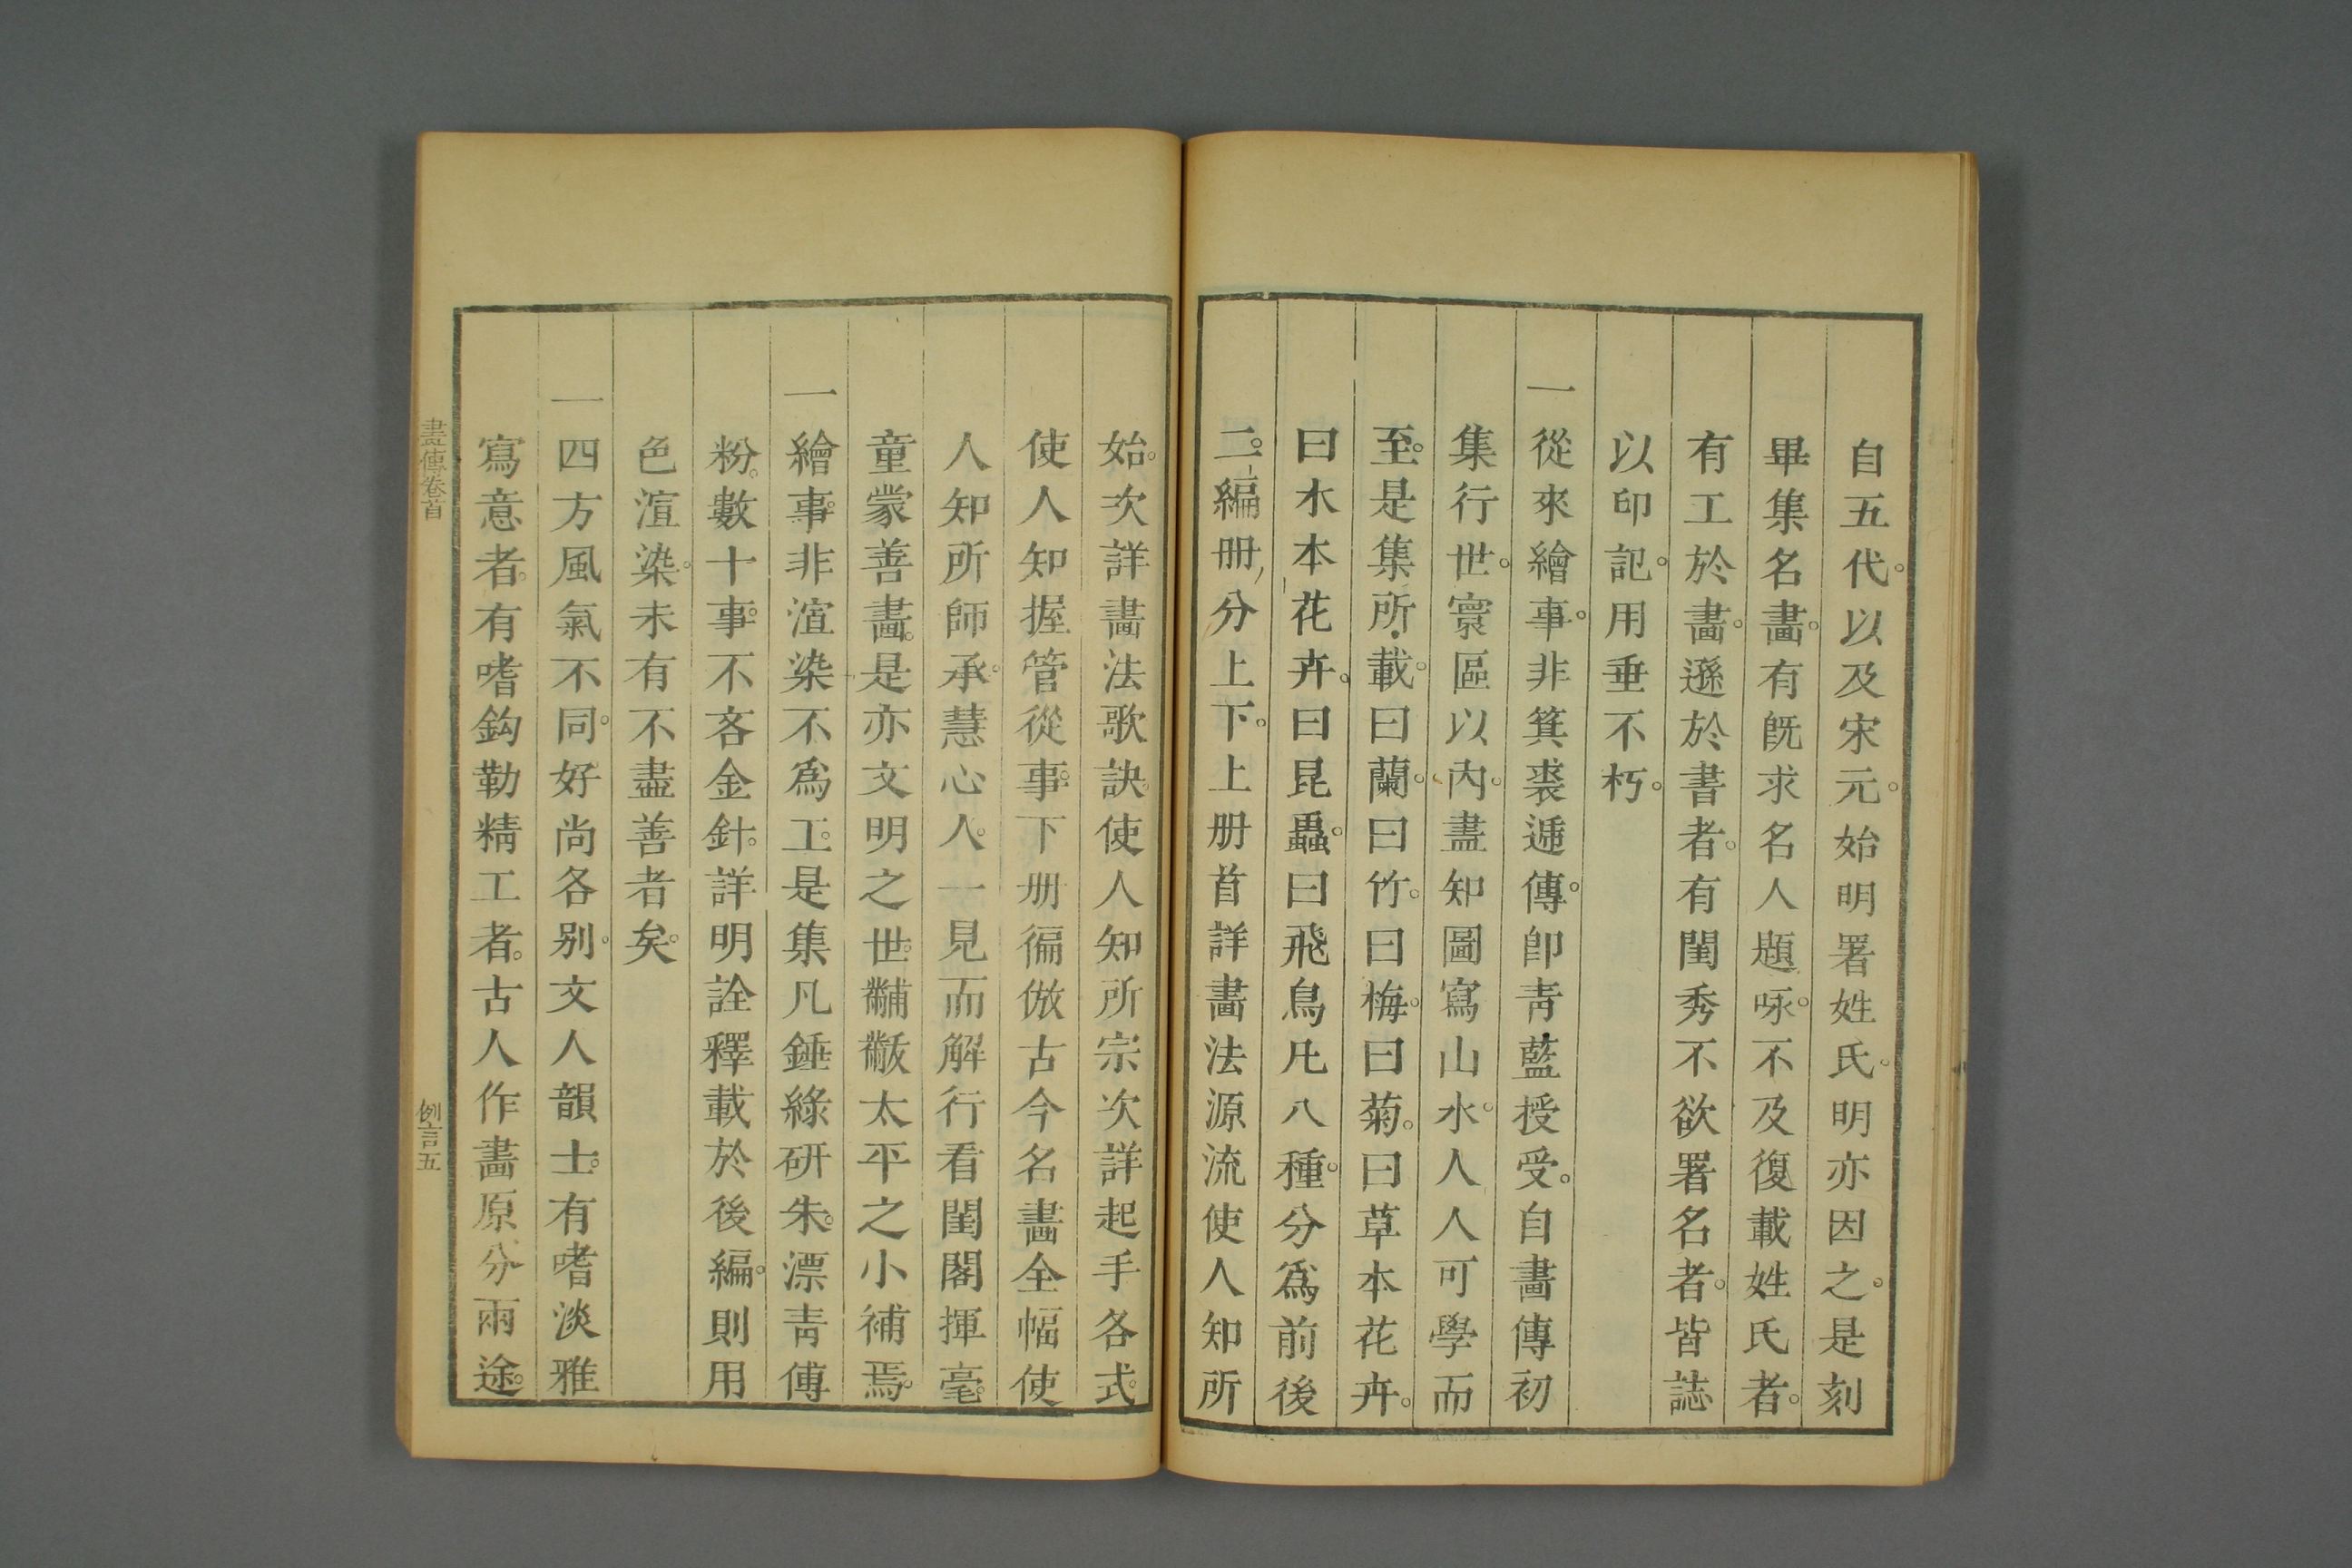 自五代。以及宋元。始明署姓氏。明亦因之。是刻
畢集名畫。有旣求名人題咏。不及復載姓氏者。
有工於畫。遜於書者。有閨秀不欲署名者。皆誌
以印記。用垂不朽。
一從來繪事。非箕裘遞傳。卽青藍授受。自畫傳初
集行世。寰區以內。盡知圖寫山水。人人可學而
至。是集所載。曰蘭。曰竹。曰梅。曰菊。曰草本花卉。
曰木本花卉。曰昆蟲。曰飛鳥凡八種。分爲前後
二編。册分上下。上册首詳畫法源流使人知所
始。次詳畫法歌訣。使人知所宗次詳起手各式。
使人知握管從事。下册徧倣古今名畫全幅使
人知所師承。慧心人。一見而解行看閨閣揮毫。
童蒙善畫。是亦文明之世。黼黻太平之小補焉。
一繪事。非渲染不爲工。是集凡錘綠研朱。漂青傅
粉。數十事。不吝金針。詳明詮釋載於後編。則用
色渲染。未有不盡善者矣。
一四方風氣不同。好尚各别。文人韻士。有嗜淡雅
寫意者。有嗜鈎勒精工者。古人作畫原分兩途。
畫傳卷首
例言五